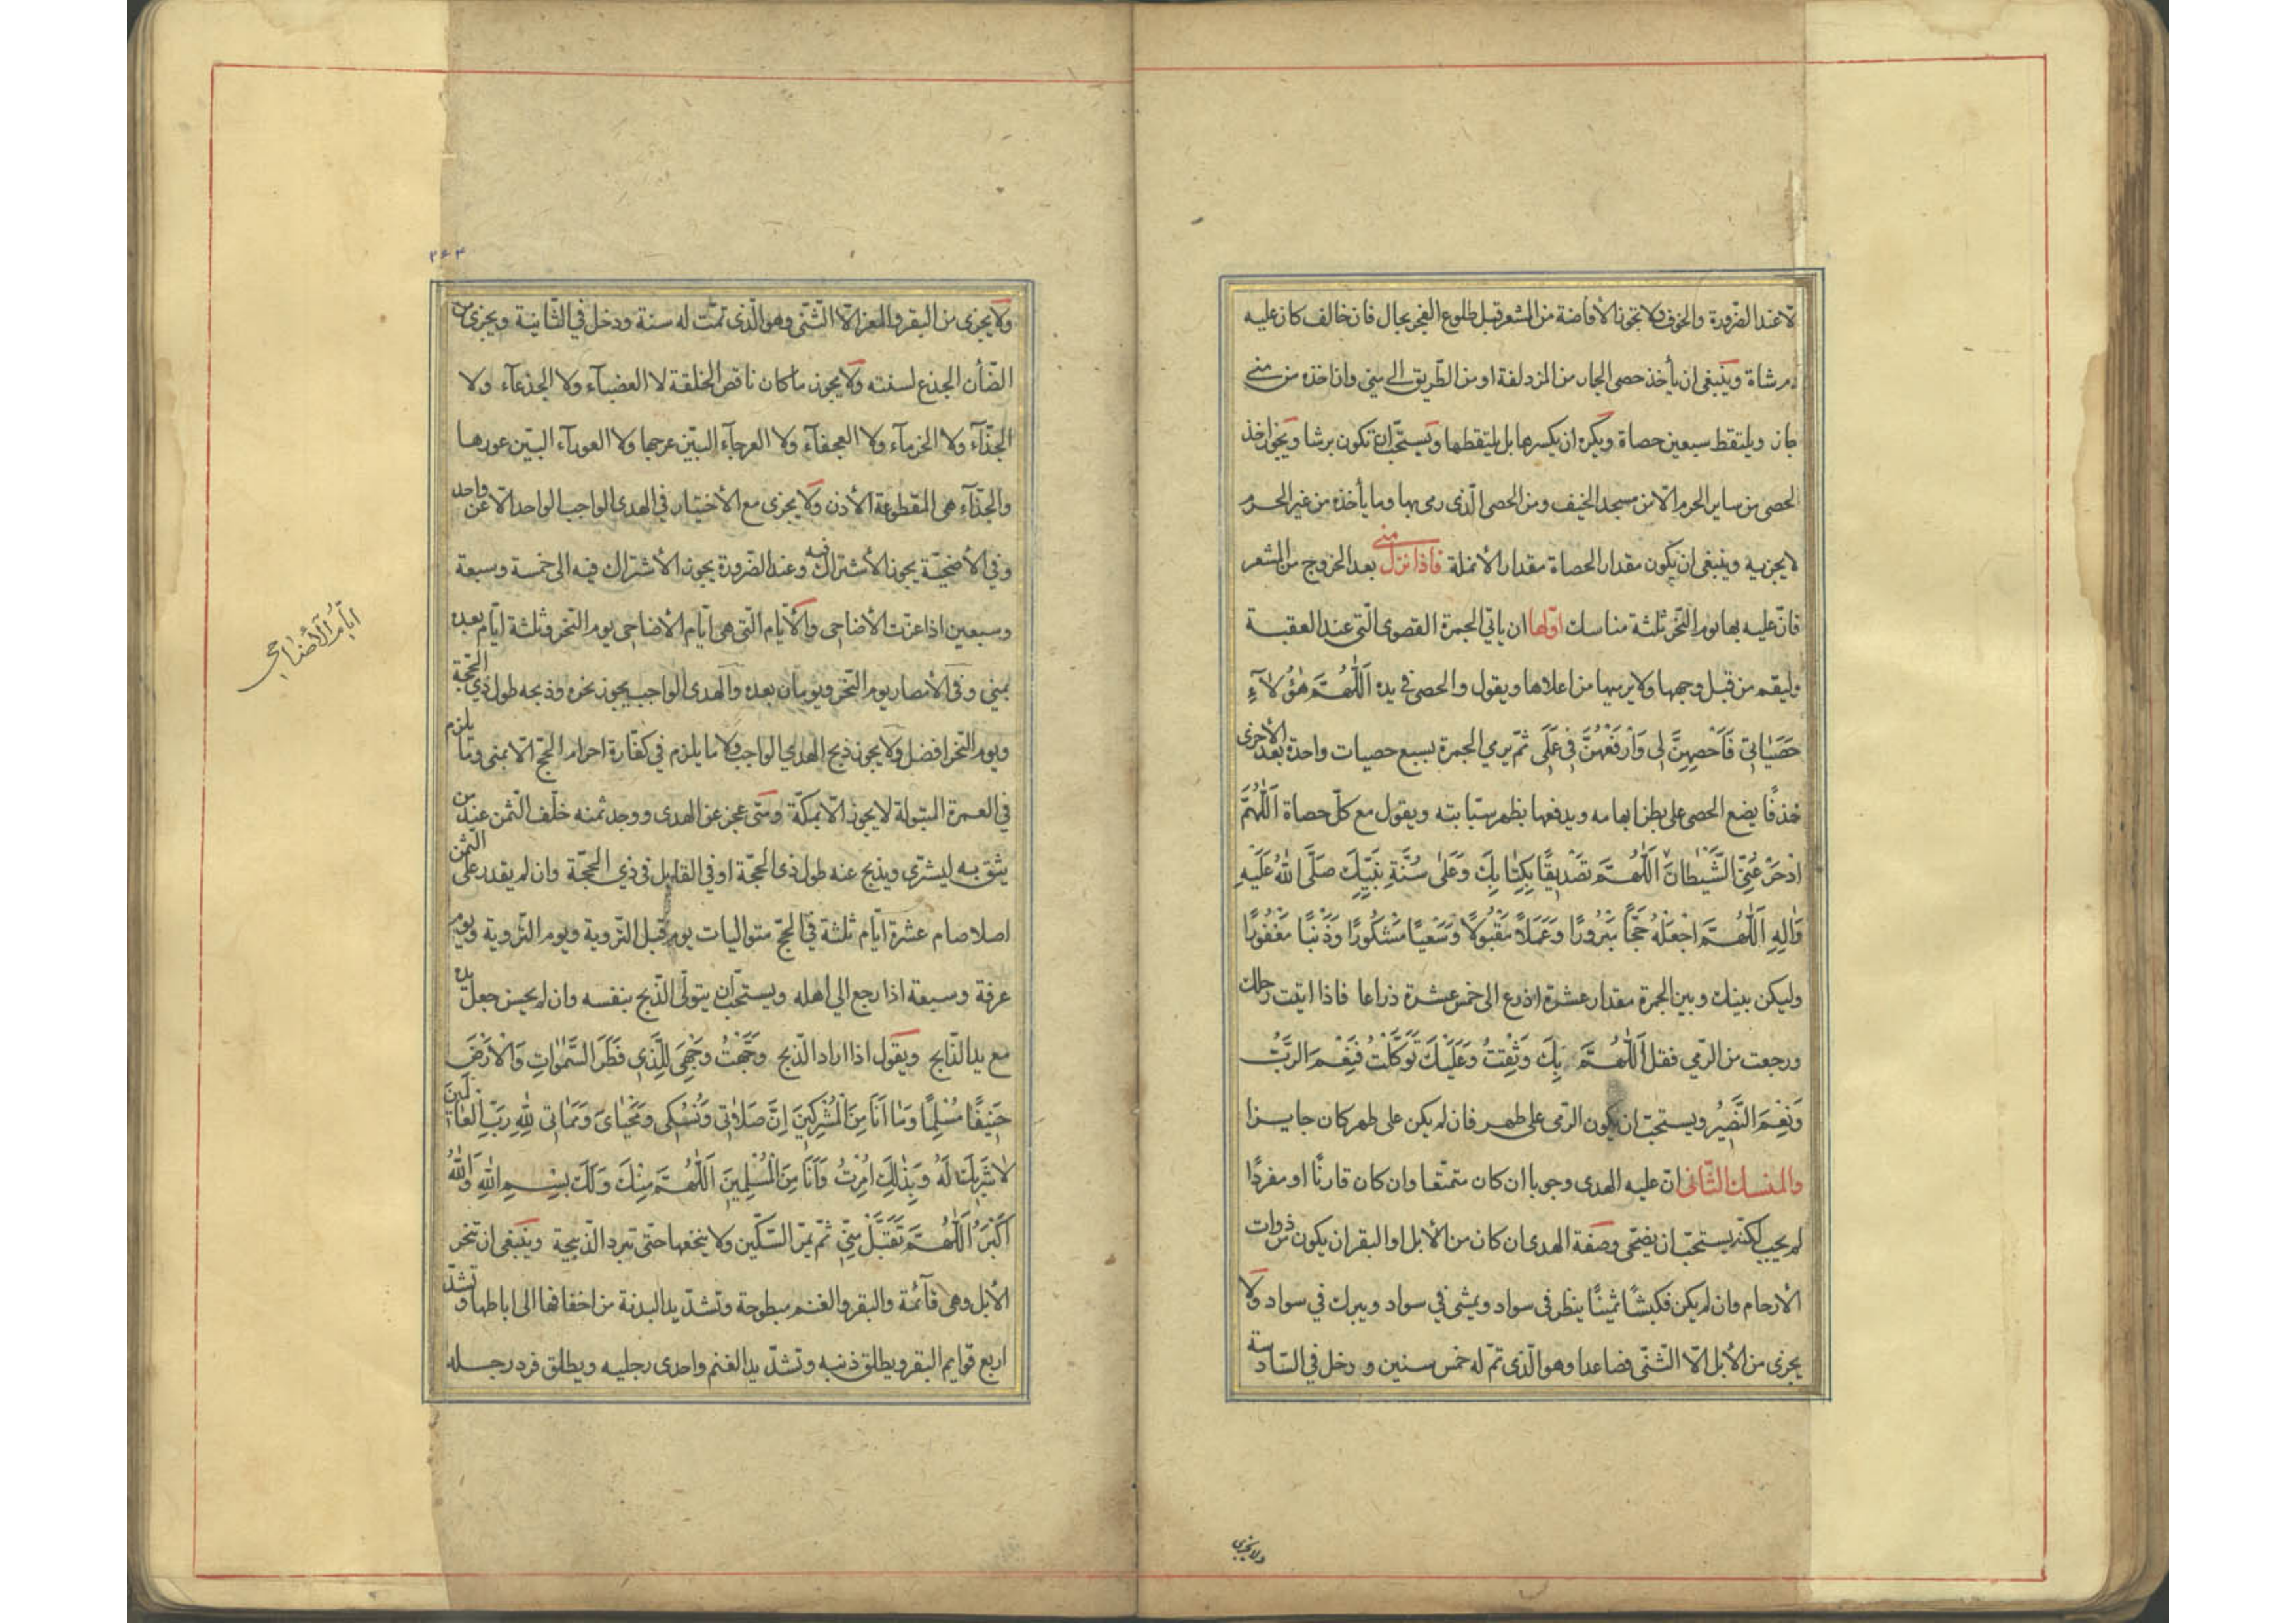 لا عند الضرورة والخوف ولا تجوز الأفاضة من المشعر قبل طلوع الفجر بحال فان خالف كان عليه
دم شاة وينبغى ان يأخذ حصى الجمار من المزدلفة او من الطّريق الى منى وان اخذه من منى
جاز ويلتقط سبعين حصاة ويكره ان يكسرها بل يلتقطها ويستحبّ ان تكون برشا ويجوز اخذ
الحصى من ساير الحرم الّا من مسجد الخيف ومن الحصى الّذى رمى بها وما يأخذه من غير الحرم
لا يجزيه وينبغى ان يكون مقدار الحصاة مقدار الأنملة فاذا نزل منى بعد الخروج من المشعر
فانّ عليه بها يوم النّحر ثلثة مناسك اوّلها ان ياتى الجمرة القصوى الّتى عند العقبة
وليقم من قبل وجهها ولا يرميها من اعلاها ويقول والحصى فى يده اَللّٰهُمَّ هٰؤُلآءِ
حَصَيَاتِى فَاَحْصِهِنَّ لِى وَارْفَعْهُنَّ فِى عَمَلِى ثمّ يرمي الجمرة بسبع حصيات واحدة بعد الأخرى
خذفًا يضع الحصى على بطن ابهامه ويدفعها بظهر سبّابته ويقول مع كلّ حصاة اَللّٰهُمَّ
ادْحَرْ عَنِّى الشَّيْطَانَ اَللّٰهُمَّ تَصْدِيقًا بِكِتَابِكَ وَعَلىٰ سُنَّةِ نَبِيِّكَ صَلَّى اللّٰهُ عَلَيْهِ
وَاٰلِهِ اَللّٰهُمَّ اجْعَلْهُ حَجًّا مَبْرُورًا وَعَمَلاً مَقْبُولاً وَسَعْيًا مَشْكُورًا وَذَنْبًا مَغْفُورًا
وليكن بينك وبين الجمرة مقدار عشرة اذرع الى خمس عشرة ذراعا فاذا اتيت رحلك
ورجعت من الرّمي فقل اَللّٰهُمَّ بِكَ وَثِقْتُ وَعَلَيْكَ تَوَكَّلْتُ فَنِعْمَ الرَّبُّ
وَنِعْمَ النَّصِيرُ ويستحبّ ان يكون الرّمى على طهر فان لم يكن على طهر كان جايزا
والمنسك الثّانى انّ عليه الهدى وجوبا ان كان متمتّعا وان كان قارنًا او مفردًا
لم يجب لكنّه يستحبّ ان يضحّى وصفة الهدى ان كان من الأبل او البقر ان يكون من ذوات
الأرحام وان لم يكن فكبشًا ثمينًا ينظر فى سواد ويمشى فى سواد ويبرك فى سواد ولا
يجزى من الأبل الّا الثّنى فصاعدا وهو الّذى تمّ له خمس سنين ودخل فى السّادسة
ولا يجزى
٢٤٣
ولا يجزى من البقر والمعز الّا الثّنى وهو الّذى تمّت له سنة ودخل فى الثّانية ويجزى من
الضّأن الجذع لسنته ولا يجوز ما كان ناقص الخلقة لا العضبآء ولا الجذعآء ولا
الجذّآء ولا الخرمآء ولا العجفآء ولا العرجآء البيّن عرجها ولا العورآء البيّن عورها
والجذّآء هى المقطوعة الأذن ولا يجزى مع الأختيار فى الهدى الواجب الواحد الّا عن واحد
وفى الأضحيّة يجوز الأشتراك فيه وعند الضّرورة يجوز الأشتراك فيه الى خمسة وسبعة
وسبعين اذا عزّت الأضاحى والأيّام الّتى هى ايّام الأضاحى يوم النّحر وثلثة ايّام بعده
بمنى وفى الأمصار يوم النّحر ويومان بعده والهدى الواجب يجوز نحره وذبحه طول ذى الحجّة
ويوم النّحر افضل ولا يجوز ذبح الهدي الواجب ولا ما يلزم فى كفّارة احرام الحجّ الّا بمنى وما يلزم
فى العمرة المبتولة لا يجوز الّا بمكّة ومتى عجز عن الهدى ووجد ثمنه خلّف الثّمن عند من
يثق به ليشترى ويذبح عنه طول ذى الحجّة او فى القابل فى ذى الحجّة وان لم يقدر على الثّمن
اصلا صام عشرة ايّام ثلثة فى الحجّ متواليات يوم قبل التّروية ويوم التّروية ويوم
عرفة وسبعة اذا رجع الى اهله ويستحبّ ان يتولّى الذّبح بنفسه وان لم يحسن جعل يده
مع يد الذّابح ويقول اذا اراد الذّبح وَجَّهْتُ وَجْهِىَ لِلَّذِى فَطَرَ السَّمٰوَاتِ وَالْاَرْضَ
حَنِيفًا مُسْلِمًا وَمَا اَنَا مِنَ الْمُشْرِكِينَ اِنَّ صَلاٰتِى وَنُسُكِى وَمَحْيَاىَ وَمَمَاتِى لِلّٰهِ رَبِّ الْعَالَمِينَ
لاٰ شَرِيكَ لَهُ وَبِذٰلِكَ اُمِرْتُ وَاَنَا مِنَ الْمُسْلِمِينَ اَللّٰهُمَّ مِنْكَ وَلَكَ بِسْمِ اللّٰهِ وَاللّٰهُ
اَكْبَرُ اَللّٰهُمَّ تَقَبَّلْ مِنِّى ثمّ تمرّ السّكّين ولا ينخعها حتّى تبرد الذّبيحة وينبغى ان تنحر
الأبل وهى قآئمة والبقر والغنم مبطوحة وتشدّ يد البدنة من اخفافها الى اباطها وتشدّ
اربع قوايم البقر ويطلق ذنبه وتشدّ يد الغنم واحدى رجليه ويطلق فرد رجله
ايّام الأضاحى